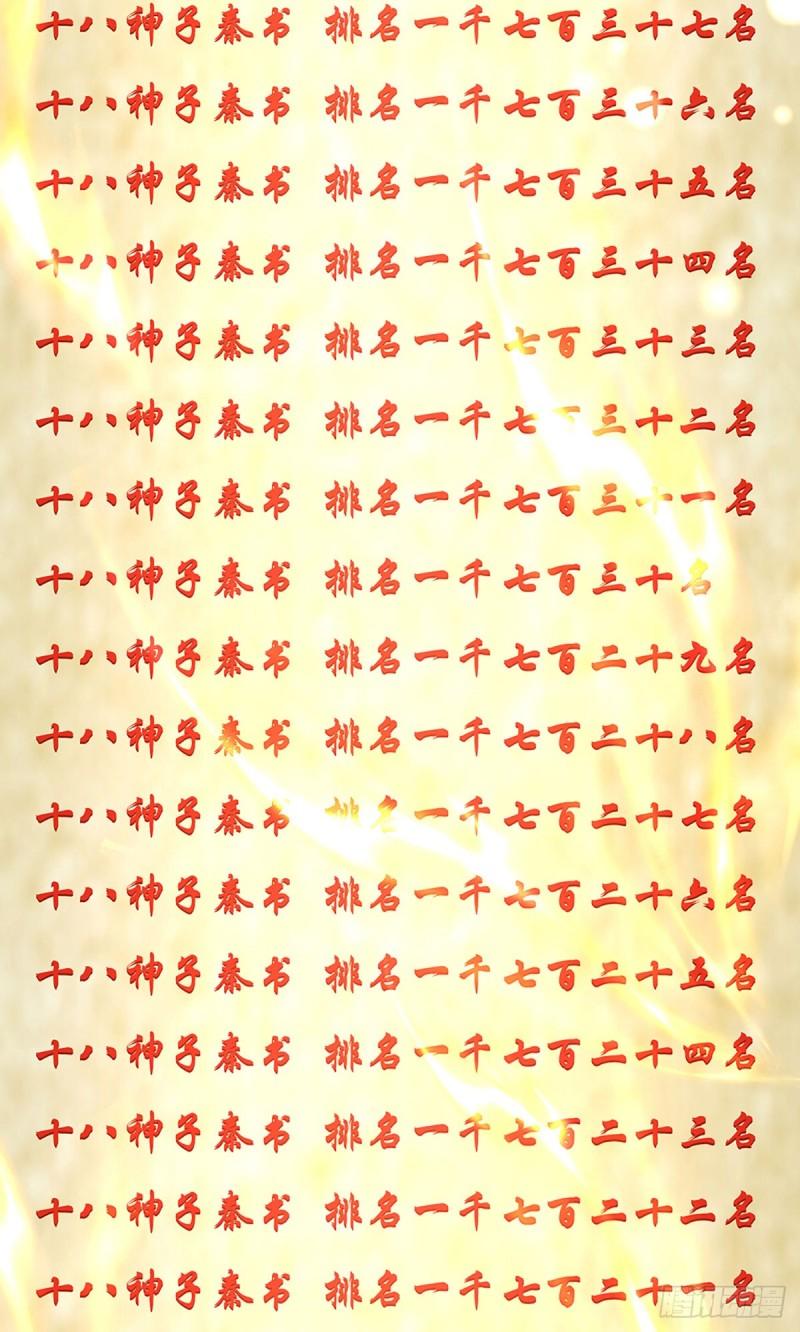 十八神子秦书 排名一千七百三十七名
十八神子秦书 排名一千七百三十六名
十八神子秦书 排名一千七百三十五名
十八神子秦书 排名一千七百三十四名
十八神子秦书 排名一千七百三十三名
十八神子秦书 排名一千七百三十二名
十八神子秦书 排名一千七百三十一名
十八神子秦书 排名一千七百三十名
十八神子秦书 排名一千七百二十九名
十八神子秦书 排名一千七百二十八名
十八神子秦书 排名一千七百二十七名
十八神子秦书 排名一千七百二十六名
十八神子秦书 排名一千七百二十五名
十八神子秦书 排名一千七百二十四名
十八神子秦书 排名一千七百二十三名
十八神子秦书 排名一千七百二十二名
十八神子秦书 排名一千七百二十一名
腾讯动漫